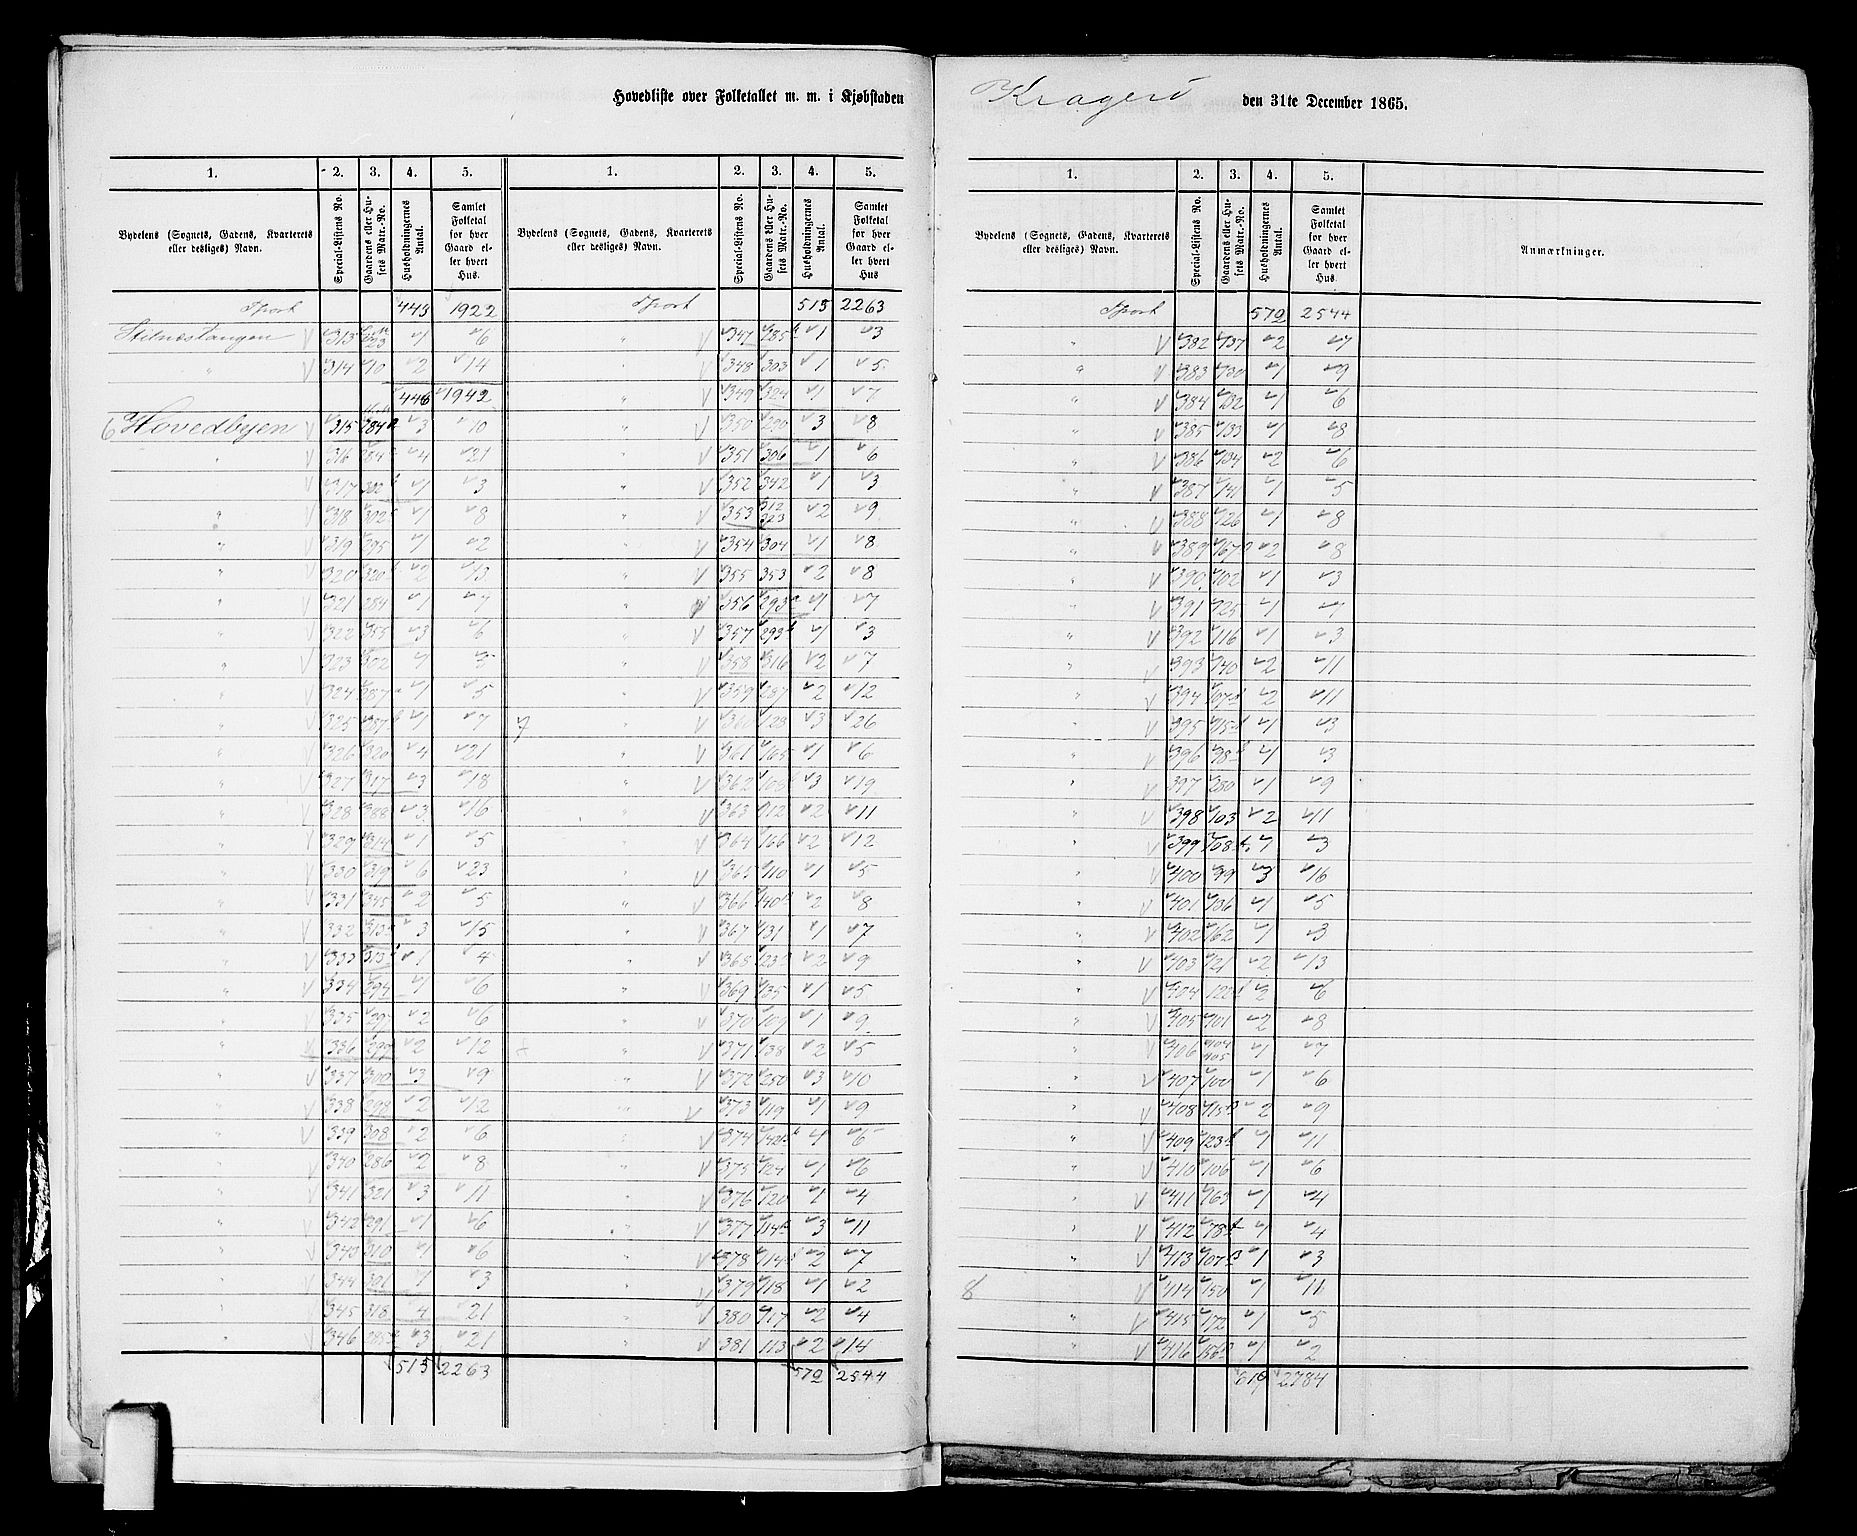 Hovedliste over Folketallet m. m. i Kjøbstaden Kragerö den 31te December 1865.
1. 2. 3. 4. 5. 1. 2. 3. 4. 5.
Bydelens (Sognets, Gadens, Kvarterets eller desliges) Navn. Special-Listens No. Gaardens eller Husets Matr.-No. Husholdningernes Antal. Samlet Folketal for hver Gaard eller hvert Hus. Bydelens (Sognets, Gadens, Kvarterets eller desliges) Navn. Special-Listens No. Gaardens eller Husets Matr.-No. Husholdningernes Antal. Samlet Folketal for hver Gaard eller hvert Hus.
Tport 443 1922 Tport 515 2263
Stilnæstangen 313 1 6 " 347 285 1 3
" 314 10 2 14 " 348 303 1 5
446 1942 " 349 324 1 7
6 Hovedbyen 315 284 a 3 10 " 350 290 3 8
" 316 284 4 21 " 351 306 1 6
317 302 1 3 " 352 342 1 3
" 318 302 1 8 " 353 312 323 2 9
" 319 295 1 2 " 354 304 1 8
" 320 320 2 13 " 355 353 2 8
" 321 284 1 7 " 356 293 1 7
" 322 355 3 6 " 357 293 1 3
" 323 302 1 5 " 358 316 2 7
" 324 287 a 1 5 " 359 287 2 12
" 325 287 1 7 7 " 360 128 3 26
" 326 320 4 21 " 361 165 1 6
" 327 317 3 18 " 362 108 3 19
" 328 288 3 16 " 363 112 2 11
" 329 314 1 5 " 364 166 2 12
" 330 319 6 23 " 365 110 1 5
" 331 345 2 5 " 366 140 2 8
" 332 313 3 15 " 367 131 1 7
" 333 313 1 4 " 368 123 2 9
" 334 294 1 6 " 369 135 1 5
" 335 297 2 6 " 370 109 1 9
" 336 299 2 12 " 371 138 2 5
" 337 300 3 9 " 372 250 3 10
" 338 298 2 12 " 373 119 1 9
" 339 308 2 6 " 374 142 1 6
" 340 286 2 8 " 375 124 1 6
" 341 321 3 11 " 376 120 1 4
" 342 291 1 6 " 377 114 3 11
" 343 310 1 6 " 378 114 2 7
" 344 301 1 3 " 379 118 1 2
" 345 318 4 21 " 380 117 2 4
" 346 285 3 21 " 381 113 2 14
515 2263 572 2544
1. 2. 3. 4. 5.
Bydelens (Sognets, Gadens, Kvarterets eller desliges) Navn. Special-Listens No. Gaardens eller Husets Matr.-No. Husholdningernes Antal. Samlet Folketal for hver Gaard eller hvert Hus. Anmærkninger.
Tport 572 2544
" 382 137 2 7
" 383 130 1 9
" 384 132 1 6
" 385 133 1 8
" 386 134 2 6
" 387 141 1 5
" 388 126 1 8
" 389 167 2 8
" 390 102 1 3
" 391 125 1 7
" 392 116 1 3
" 393 140 2 11
" 394 107 2 11
" 395 115 1 3
" 396 98 1 3
" 397 280 1 9
" 398 103 2 11
" 399 108 1 3
" 400 99 3 16
" 401 136 1 5
" 402 162 1 3
" 403 121 2 13
" 404 122 2 6
" 405 101 2 8
" 406 104 105 1 7
" 407 100 1 6
" 408 115 2 9
" 409 123 1 11
" 410 106 1 6
" 411 163 1 4
" 412 78 1 4
" 413 107 1 3
8 " 414 150 1 11
" 415 172 1 5
" 416 156 1 2
619 2784